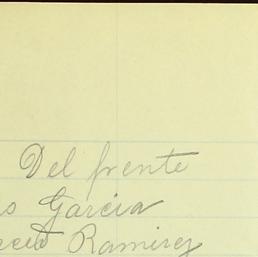 Del frente
Garcia
Ramirez